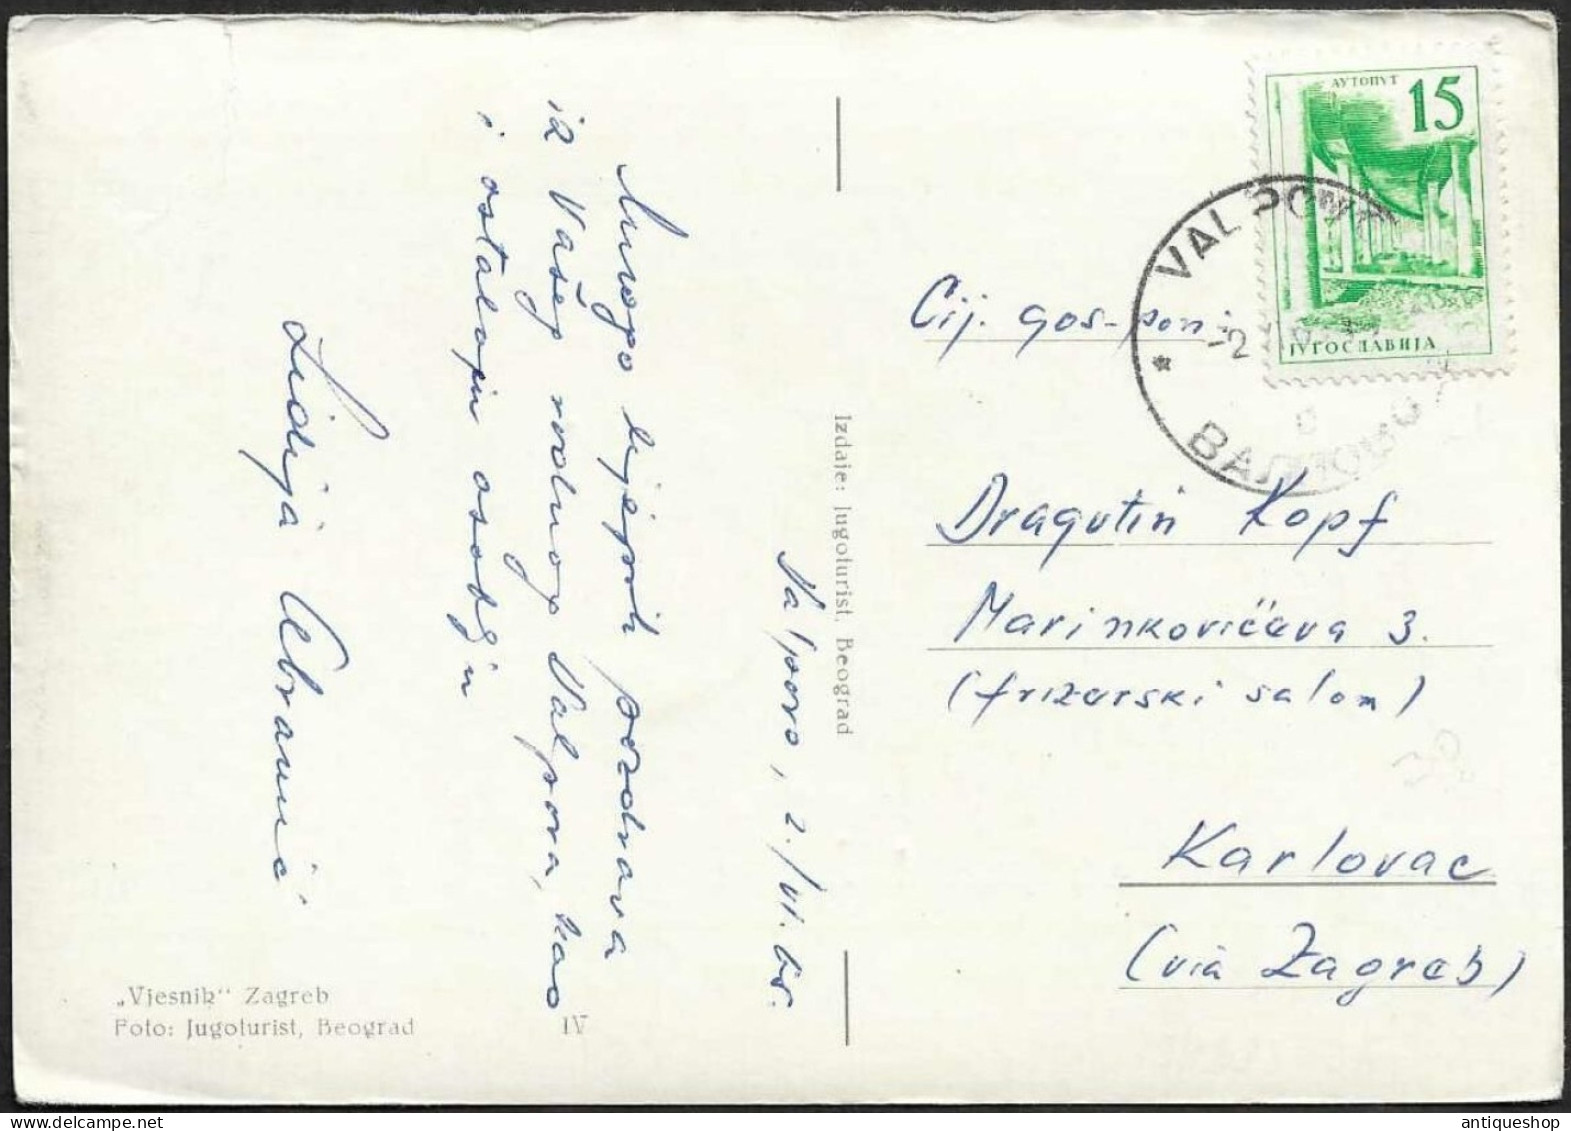 Valpovo, 2./VI. 65.
Mnogo lijepih pozdrava
iz Vašeg rodnog Valpova, kao
i ostalom osoblju
Lidija Abramić
„Vjesnik“ Zagreb
Foto: Jugoturist, Beograd
IV
Izdaje: Jugoturist, Beograd
АУТОПУТ
15
ЈУГОСЛАВИЈА
VALPOVO
-2
Cij. gos-pon
Dragutin Kopf
Marinkovićeva 3.
(frizerski salon)
Karlovac
(via Zagreb)
30
antiqueshop